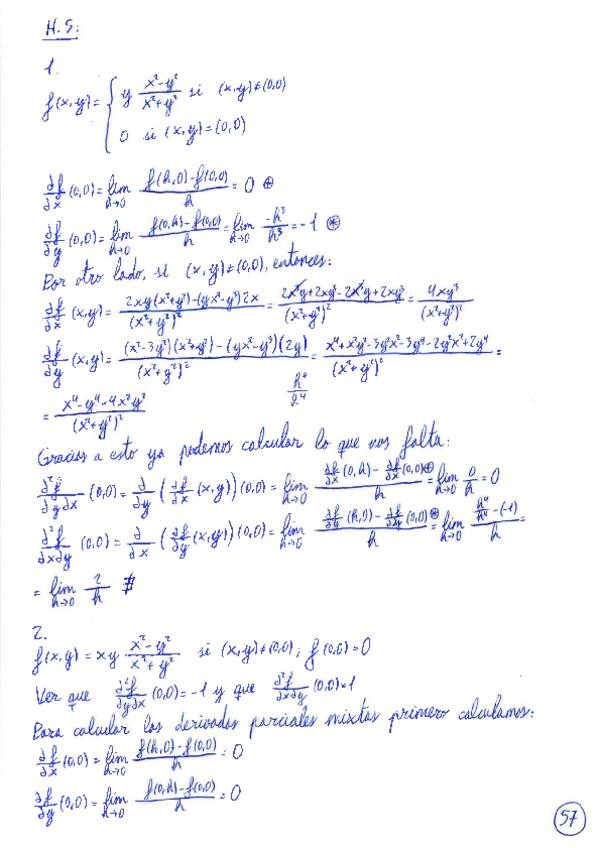 H.5:
1.
f(x,y) = { y (x²-y²)/(x²+y²) si (x,y)≠(0,0)
0 si (x,y)=(0,0)
∂f/∂x (0,0) = lim h→0 (f(h,0)-f(0,0))/h = 0 ⊕
∂f/∂y (0,0) = lim h→0 (f(0,h)-f(0,0))/h = lim h→0 -h³/h³ = -1 ⊛
Por otro lado, si (x,y)≠(0,0), entonces:
∂f/∂x (x,y) = (2xy(x²+y²)-(yx²-y³)2x)/(x²+y²)² = (2x³y+2xy³-2x³y+2xy³)/(x²+y²)² = 4xy³/(x²+y²)²
∂f/∂y (x,y) = ((x²-3y²)(x²+y²)-(yx²-y³)(2y))/(x²+y²)² = (x⁴+x²y²-3y²x²-3y⁴-2y²x²+2y⁴)/(x²+y²)² =
= (x⁴-y⁴-4x²y²)/(x²+y²)² h⁴/h⁴
Gracias a esto ya podemos calcular lo que nos falta:
∂²f/∂y∂x (0,0) = ∂/∂y (∂f/∂x (x,y))(0,0) = lim h→0 (∂f/∂x (0,h) - ∂f/∂x (0,0)⊕)/h = lim h→0 0/h = 0
∂²f/∂x∂y (0,0) = ∂/∂x (∂f/∂y (x,y))(0,0) = lim h→0 (∂f/∂y (h,0) - ∂f/∂y (0,0)⊛)/h = lim h→0 (h⁴/h⁴ -(-1))/h =
= lim h→0 2/h ∄
2.
f(x,y) = xy (x²-y²)/(x²+y²) si (x,y)≠(0,0); f(0,0)=0
Ver que ∂²f/∂y∂x (0,0) = -1 y que ∂²f/∂x∂y (0,0) = 1
Para calcular las derivadas parciales mixtas primero calculamos:
∂f/∂x (0,0) = lim h→0 (f(h,0)-f(0,0))/h = 0
∂f/∂y (0,0) = lim h→0 (f(0,h)-f(0,0))/h = 0
57